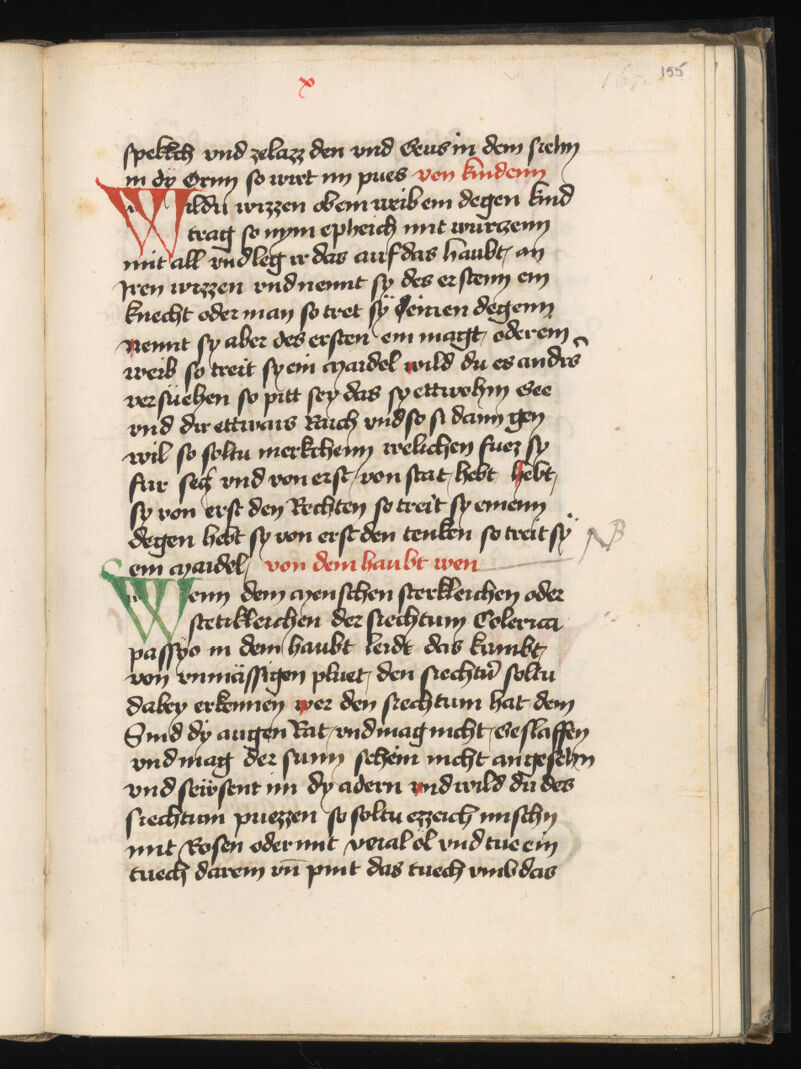 155
x
spekkch vnd zelazz den vnd Geus in dem siehn
in dy Orm so wirt im pues von kindenn
Wildu wizzen ob ein weib ein degen kind
trag so nym epheich mit wurczenn
mit all vnd leg ir das auf das haubt an
Iren wizzen vnd nennt sy des erstenn ein
knecht oder man so tret sy einen degenn
nennt sy aber des ersten ein magt oder ein
weib so treit sy ein maidel wild du es anders
versuehen so pitt sey das sy ettwohin Gee
vnd dir ettwas Raich vnd so si dann gen
wil so soltu merkchenn welichen fuez sy
fur secz vnd von erst von stat hebt hebt
sy von erst den Rechten so treit sy einenn
degen hebt sy von erst den tenken so treit sy
ein maidel von dem haubt wen
NB
Wenn dem menschen sterkleichen oder
stetikleichen der siechtum Colerica
passyo in dem haubt leidt das kumbt
von vnmässigen pluet den siechtum soltu
dabey erkennen wer den siechtum hat dem
Sind dy augen Rat vnd mag nicht Geslaffen
vnd mag der sunn schein nicht angesehn
vnd seüsent im dy adern vnd wild du des
siechtum puezzen so soltu ezzeich mischn
mit Rosen oder mit veial öl vnd tue ein
tuech darein vn̄ pint das tuech vmb das